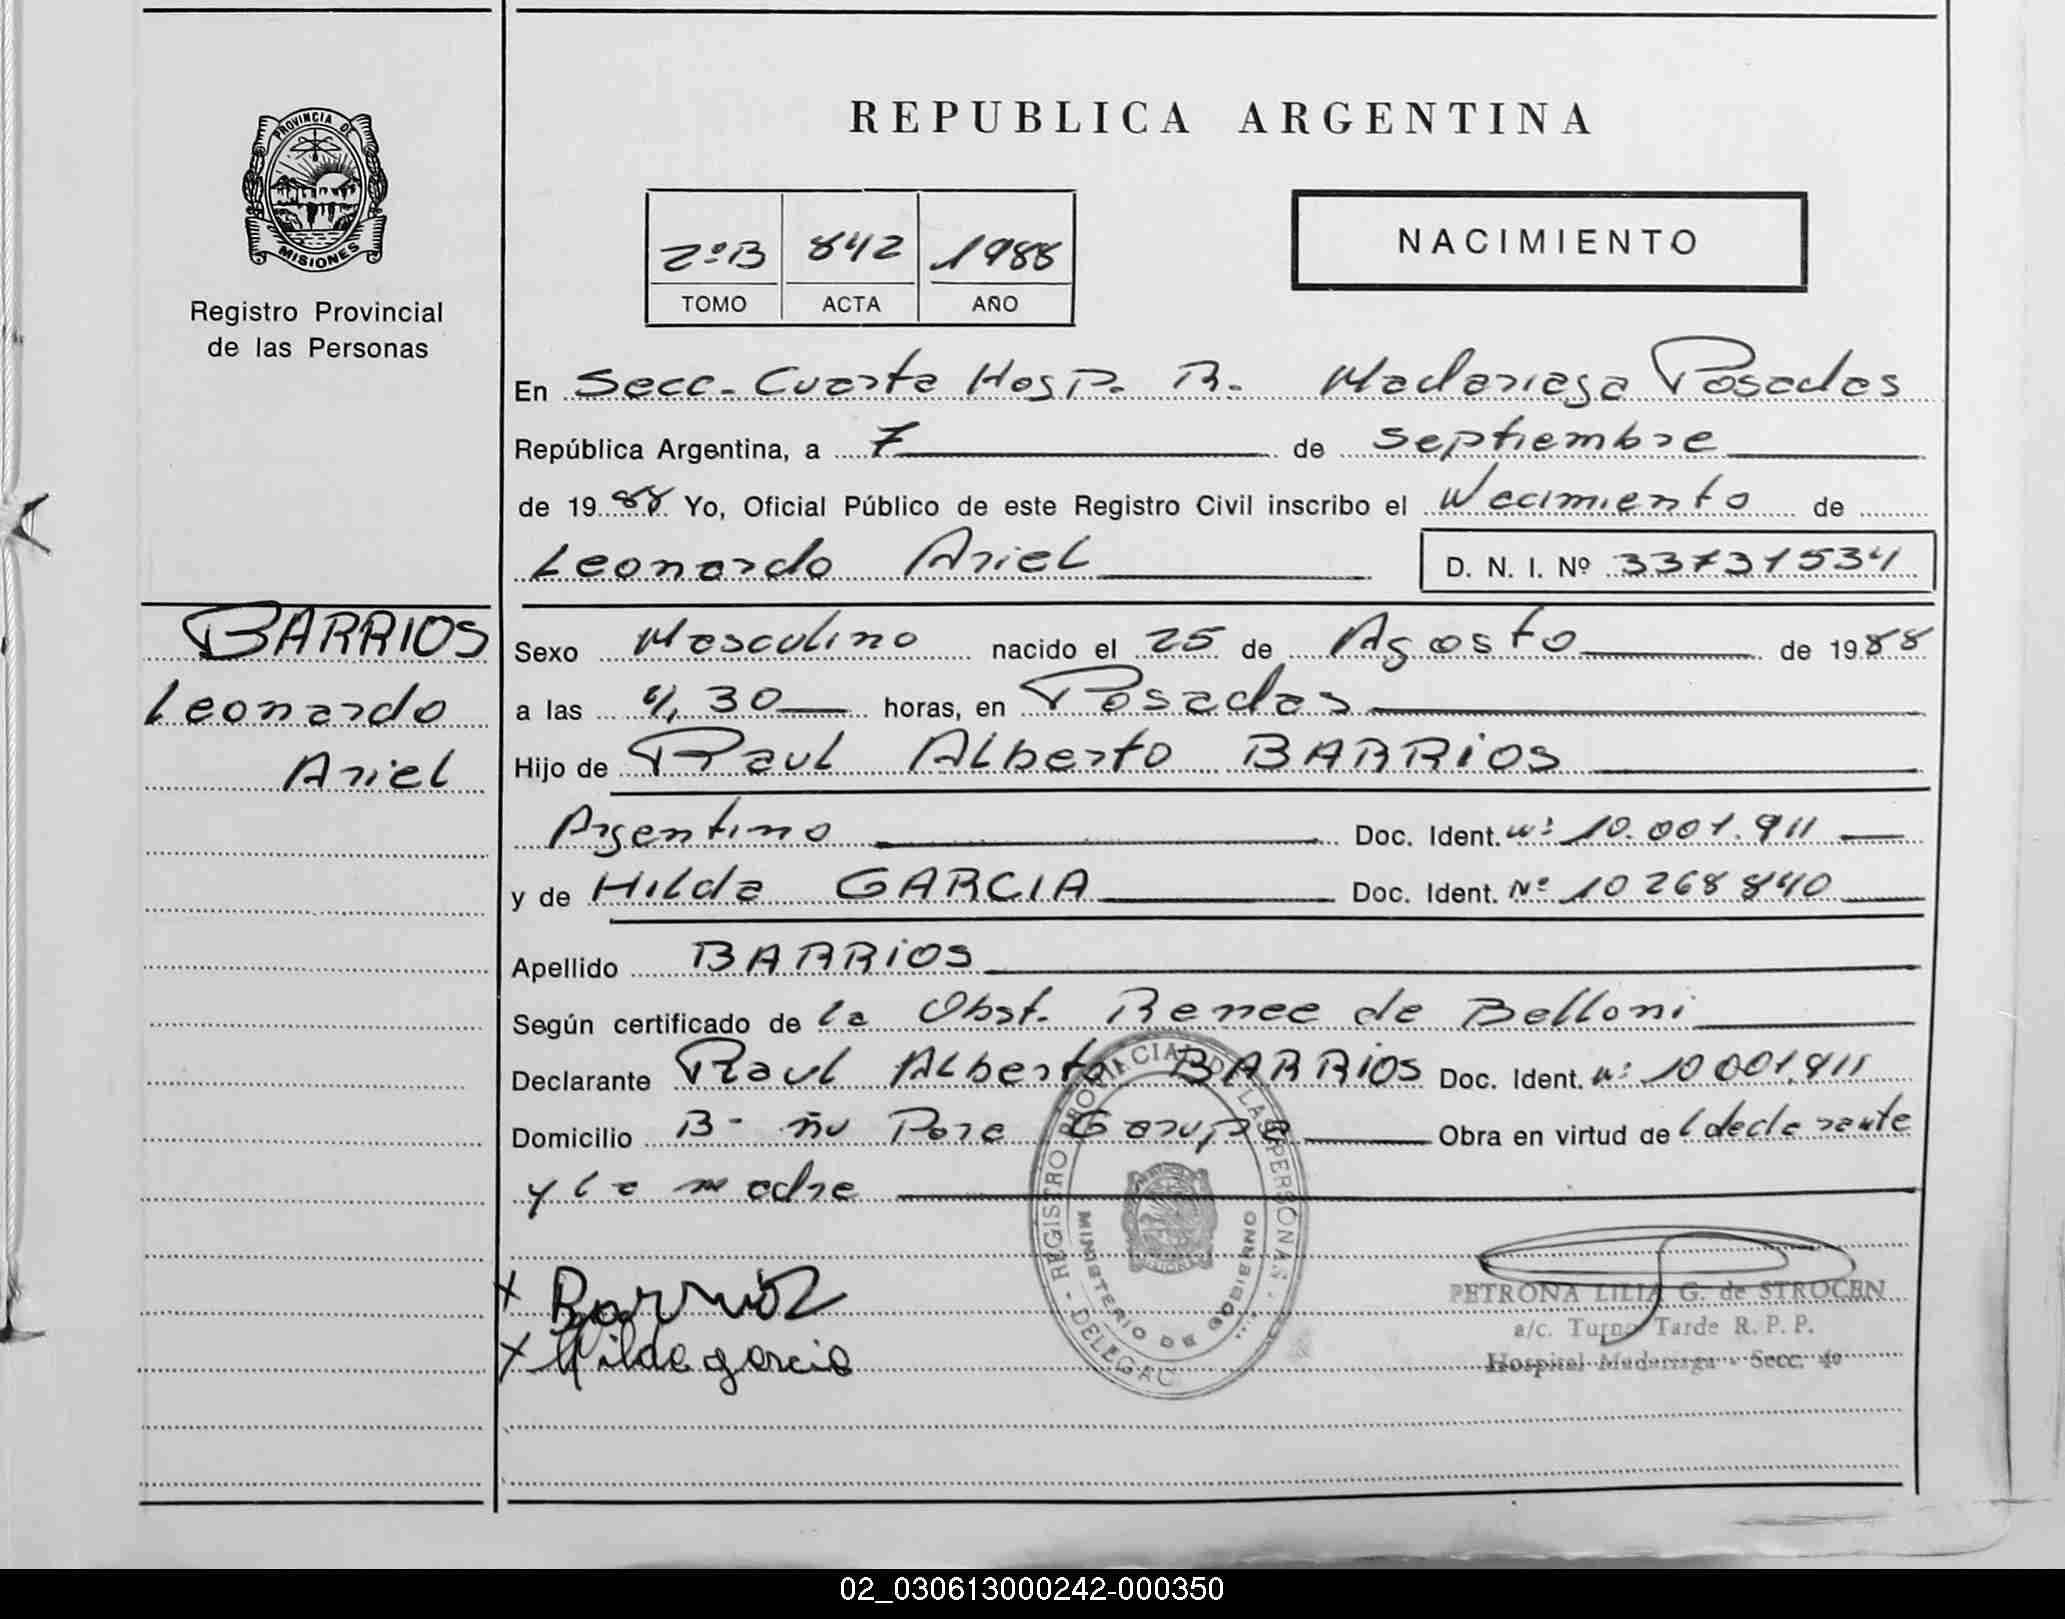 PROVINCIA DE
MISIONES
Registro Provincial
de las Personas
REPUBLICA ARGENTINA
2º B 842 1988
TOMO ACTA AÑO
NACIMIENTO
En Secc. Cuarta Hosp. R. Madariaga Posadas
República Argentina, a 7 de Septiembre
de 1988 Yo, Oficial Público de este Registro Civil inscribo el Nacimiento de
Leonardo Ariel D. N. I. Nº 33731534
BARRIOS
Leonardo
Ariel
Sexo Masculino nacido el 25 de Agosto de 1988
a las 4,30 horas, en Posadas
Hijo de Raul Alberto BARRiOS
Argentino Doc. Ident. Nº 10.001.911
y de Hilda GARCIA Doc. Ident. Nº 10268840
Apellido BARRiOS
Según certificado de la Obst. Renee de Belloni
Declarante Raul Alberto BARRiOS Doc. Ident. Nº 10001.911
Domicilio B- ñu Pora Garupa Obra en virtud de l declarante
y la madre
REGISTRO PROVINCIAL DE LAS PERSONAS - DELEGAC
MINISTERIO DE GOBIERNO
x Barrios
x Hilda garcia
PETRONA LILIA G. de STROCEN
a/c. Turno Tarde R. P. P.
Hospital Madariaga - Secc. 4º
02_030613000242-000350